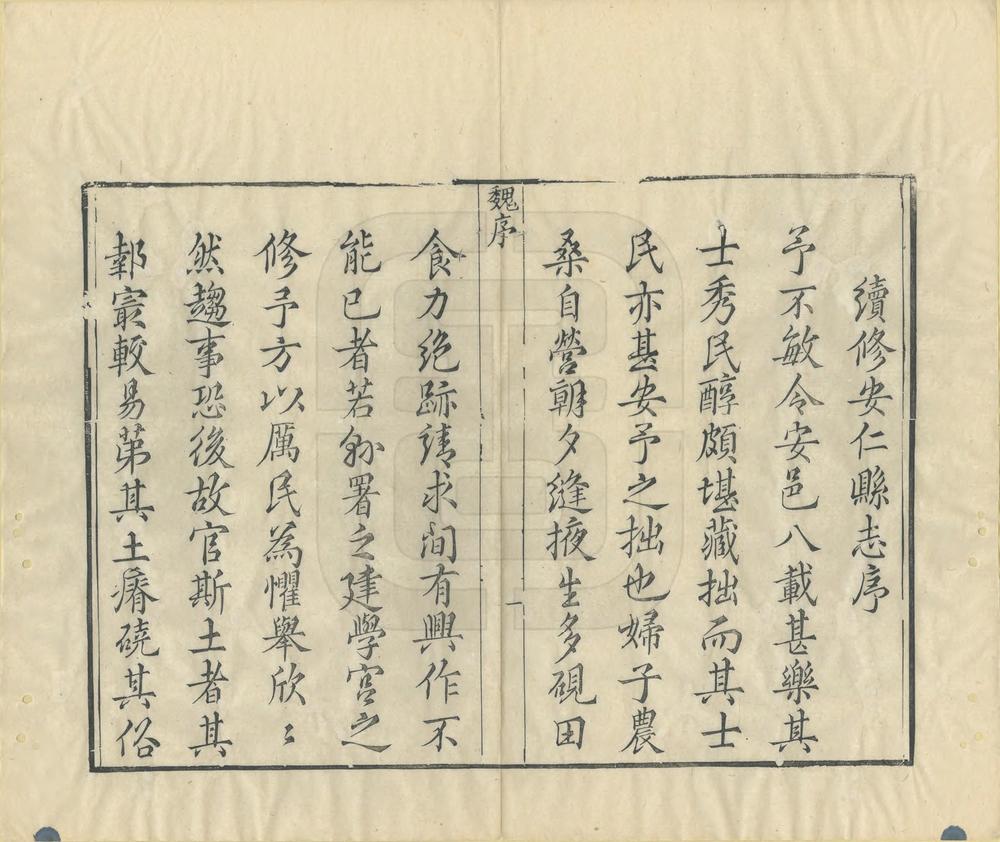 續修安仁縣志序
予不敏令安邑八載甚樂其
士秀民醇頗堪藏拙而其士
民亦甚安予之拙也婦子農
桑自營朝夕縫掖生多硯田
魏序
一
食力絶跡請求間有興作不
能已者若縣署之建學宮之
修予方以厲民為懼舉欣〻
然趨事恐後故官斯土者其
報宲較易苐其土瘠磽其俗